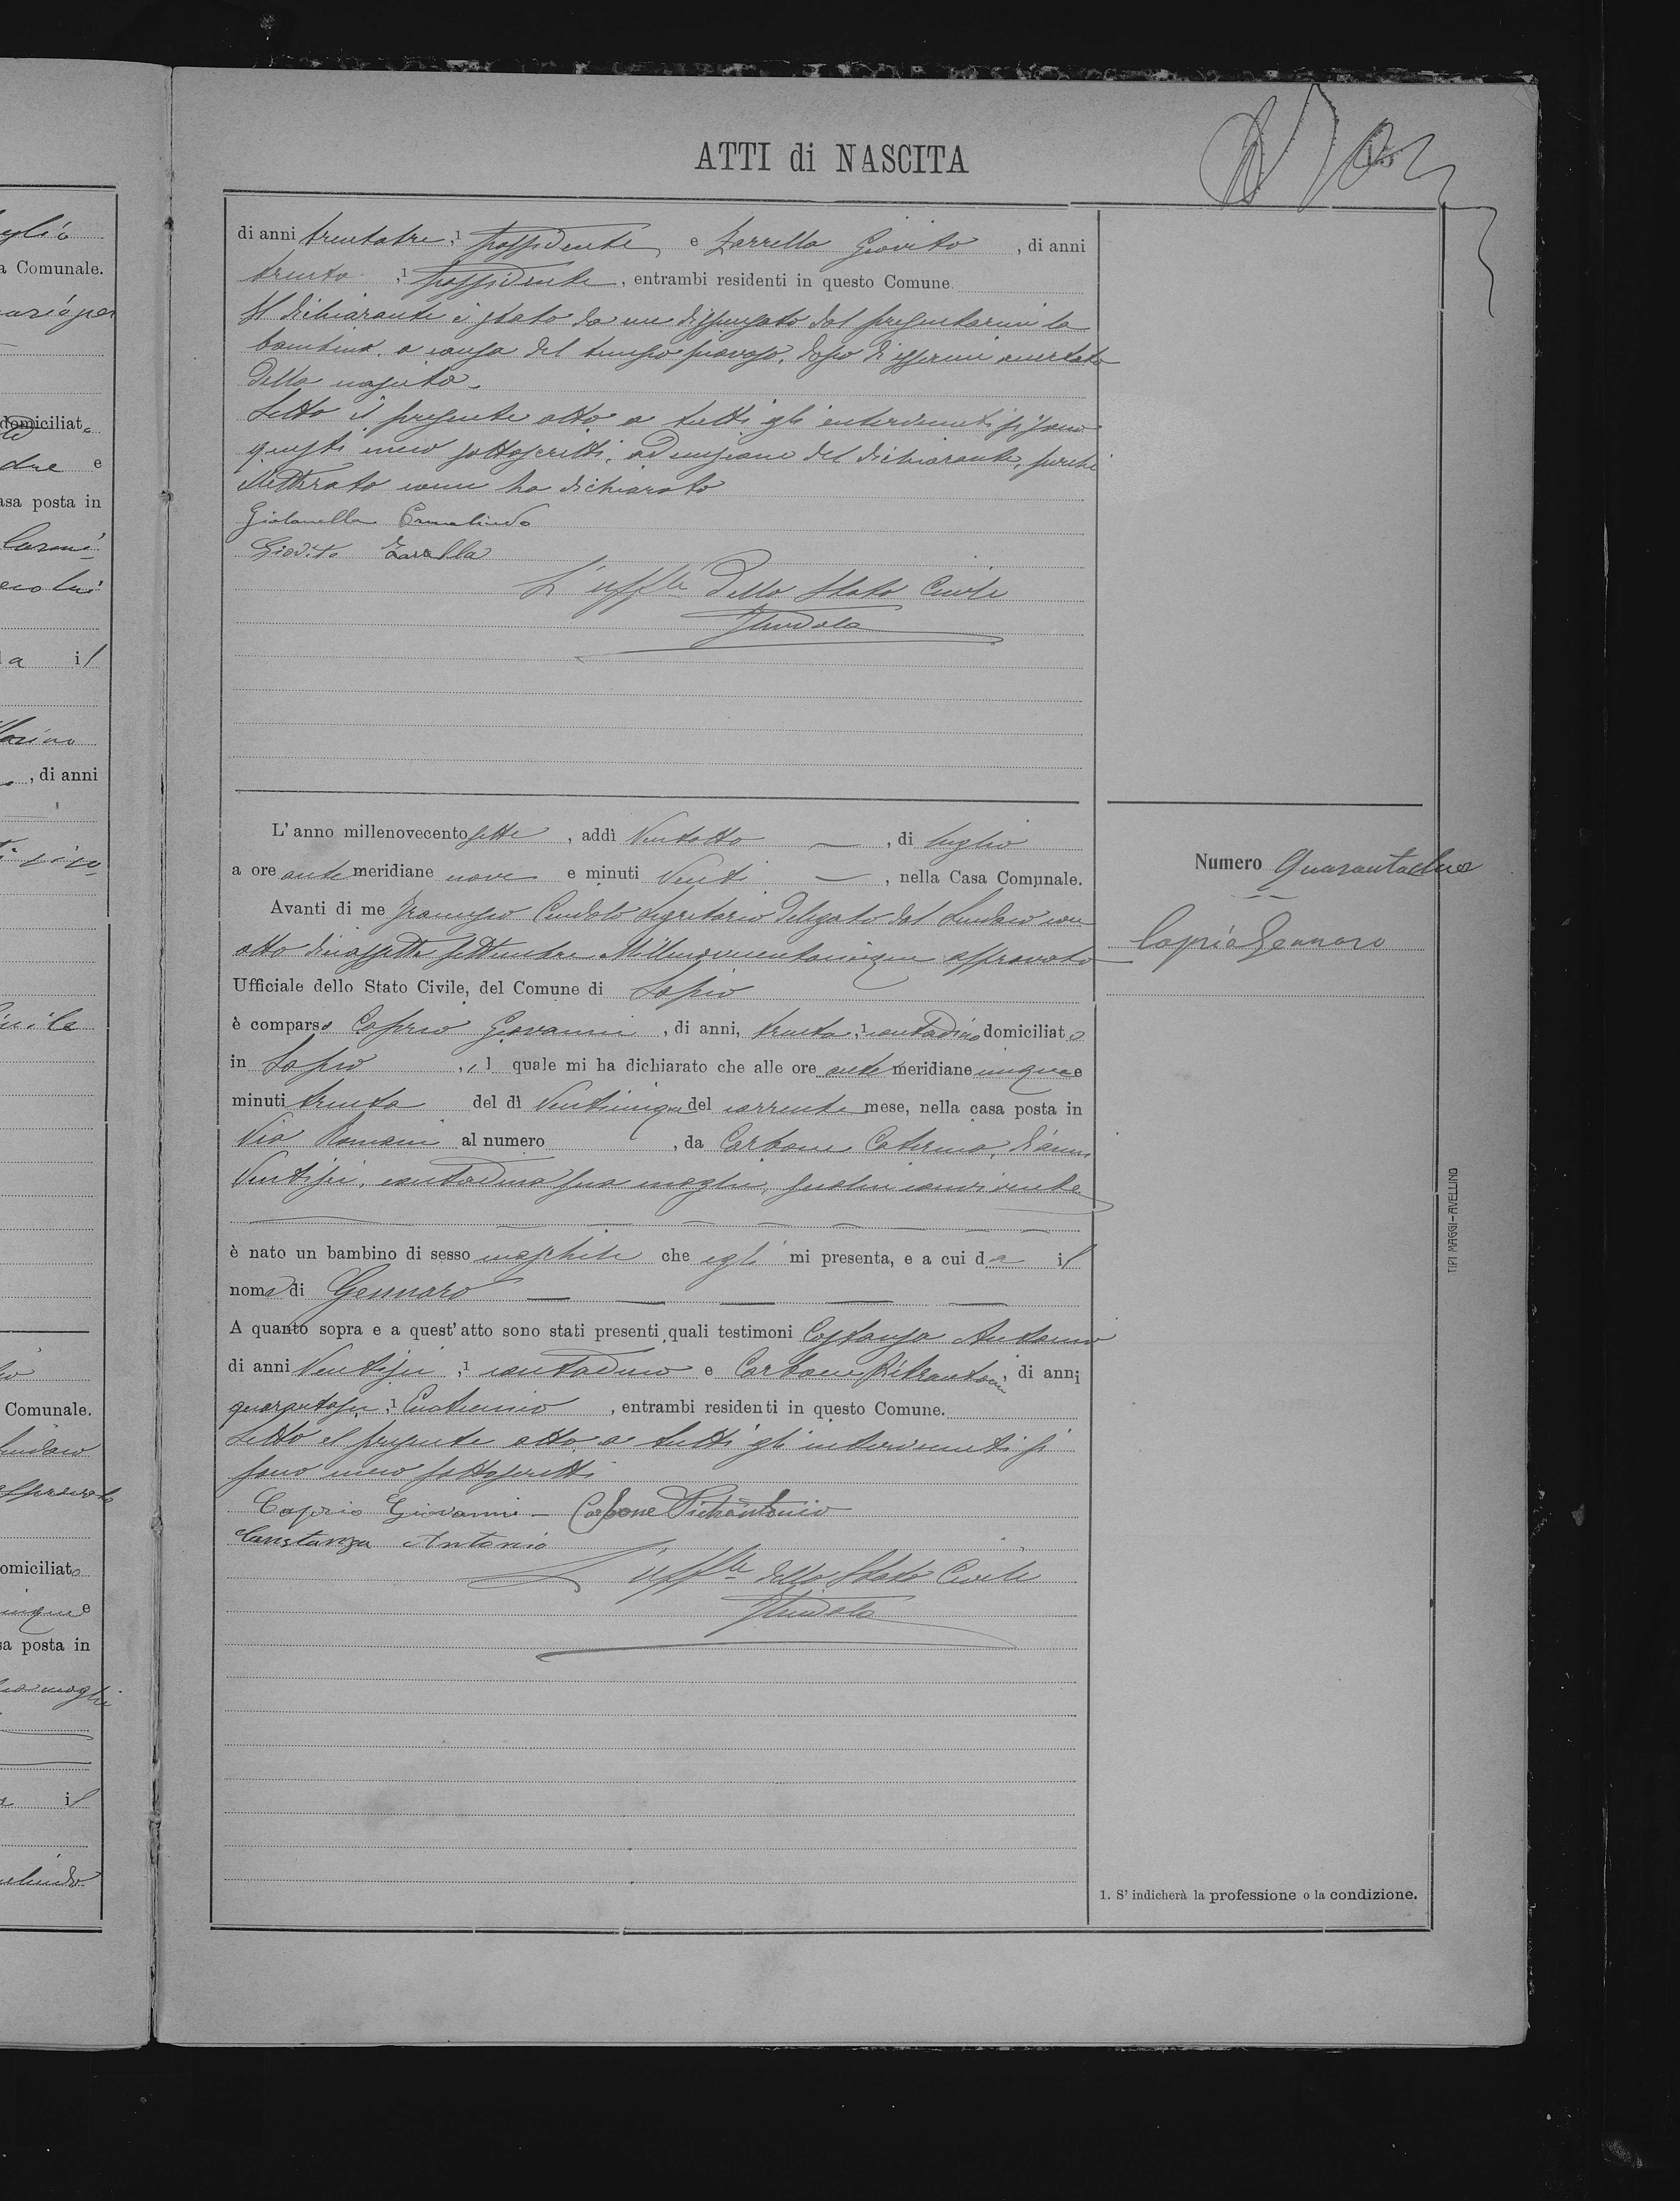 ATTI di NASCITA
di anni trentatre, 1 possidente e Zarrella Giovito, di anni
trenta, 1 possidente, entrambi residenti in questo Comune.
Il dichiarante è stato da me dispensato dal presentarmi la
bambina, a causa del tempo piovoso, dopo di essermi accertato
della nascita.
Letto il presente atto a tutti gli intervenuti si sono
questi meco sottoscritti, ad eccezione del dichiarante, perchè
illetterato come ha dichiarato
Ermelinda
Giovito Zarrella
L'uffle dello Stato Civile
L'anno millenovecentosette, addì Ventotto —, di luglio
a ore antemeridiane nove e minuti Venti —, nella Casa Comunale.
Avanti di me Francesco Segretario delegato dal Sindaco con
atto diciassette settembre Millenovecentocinque approvato
Ufficiale dello Stato Civile, del Comune di Lapio
è comparso Caprio Giovanni, di anni, trenta, 1 contadino domiciliato
in Lapio, il quale mi ha dichiarato che alle ore antemeridiane cinque e
minuti trenta del dì Venticinque del corrente mese, nella casa posta in
Via Romani al numero , da Carbone Caterina, d'anni
Ventisei, contadina sua moglie, seco lui convivente
è nato un bambino di sesso maschile che egli mi presenta, e a cui da il
nome di Gennaro
A quanto sopra e a quest'atto sono stati presenti quali testimoni Costanza Antonio
di anni Ventisei, 1 contadino e Carbone Pietrantonio, di anni
quarantasei, 1 , entrambi residenti in questo Comune.
Letto il presente atto a tutti gli intervenuti si
sono meco sottoscritti
Caprio Giovanni - Carbone Pietrantonio
Constanza Antonio
L'uffle dello Stato Civile
Numero Quarantadue
Caprio Gennaro
1. S'indicherà la professione o la condizione.
TIPI MAGGI-AVELLINO